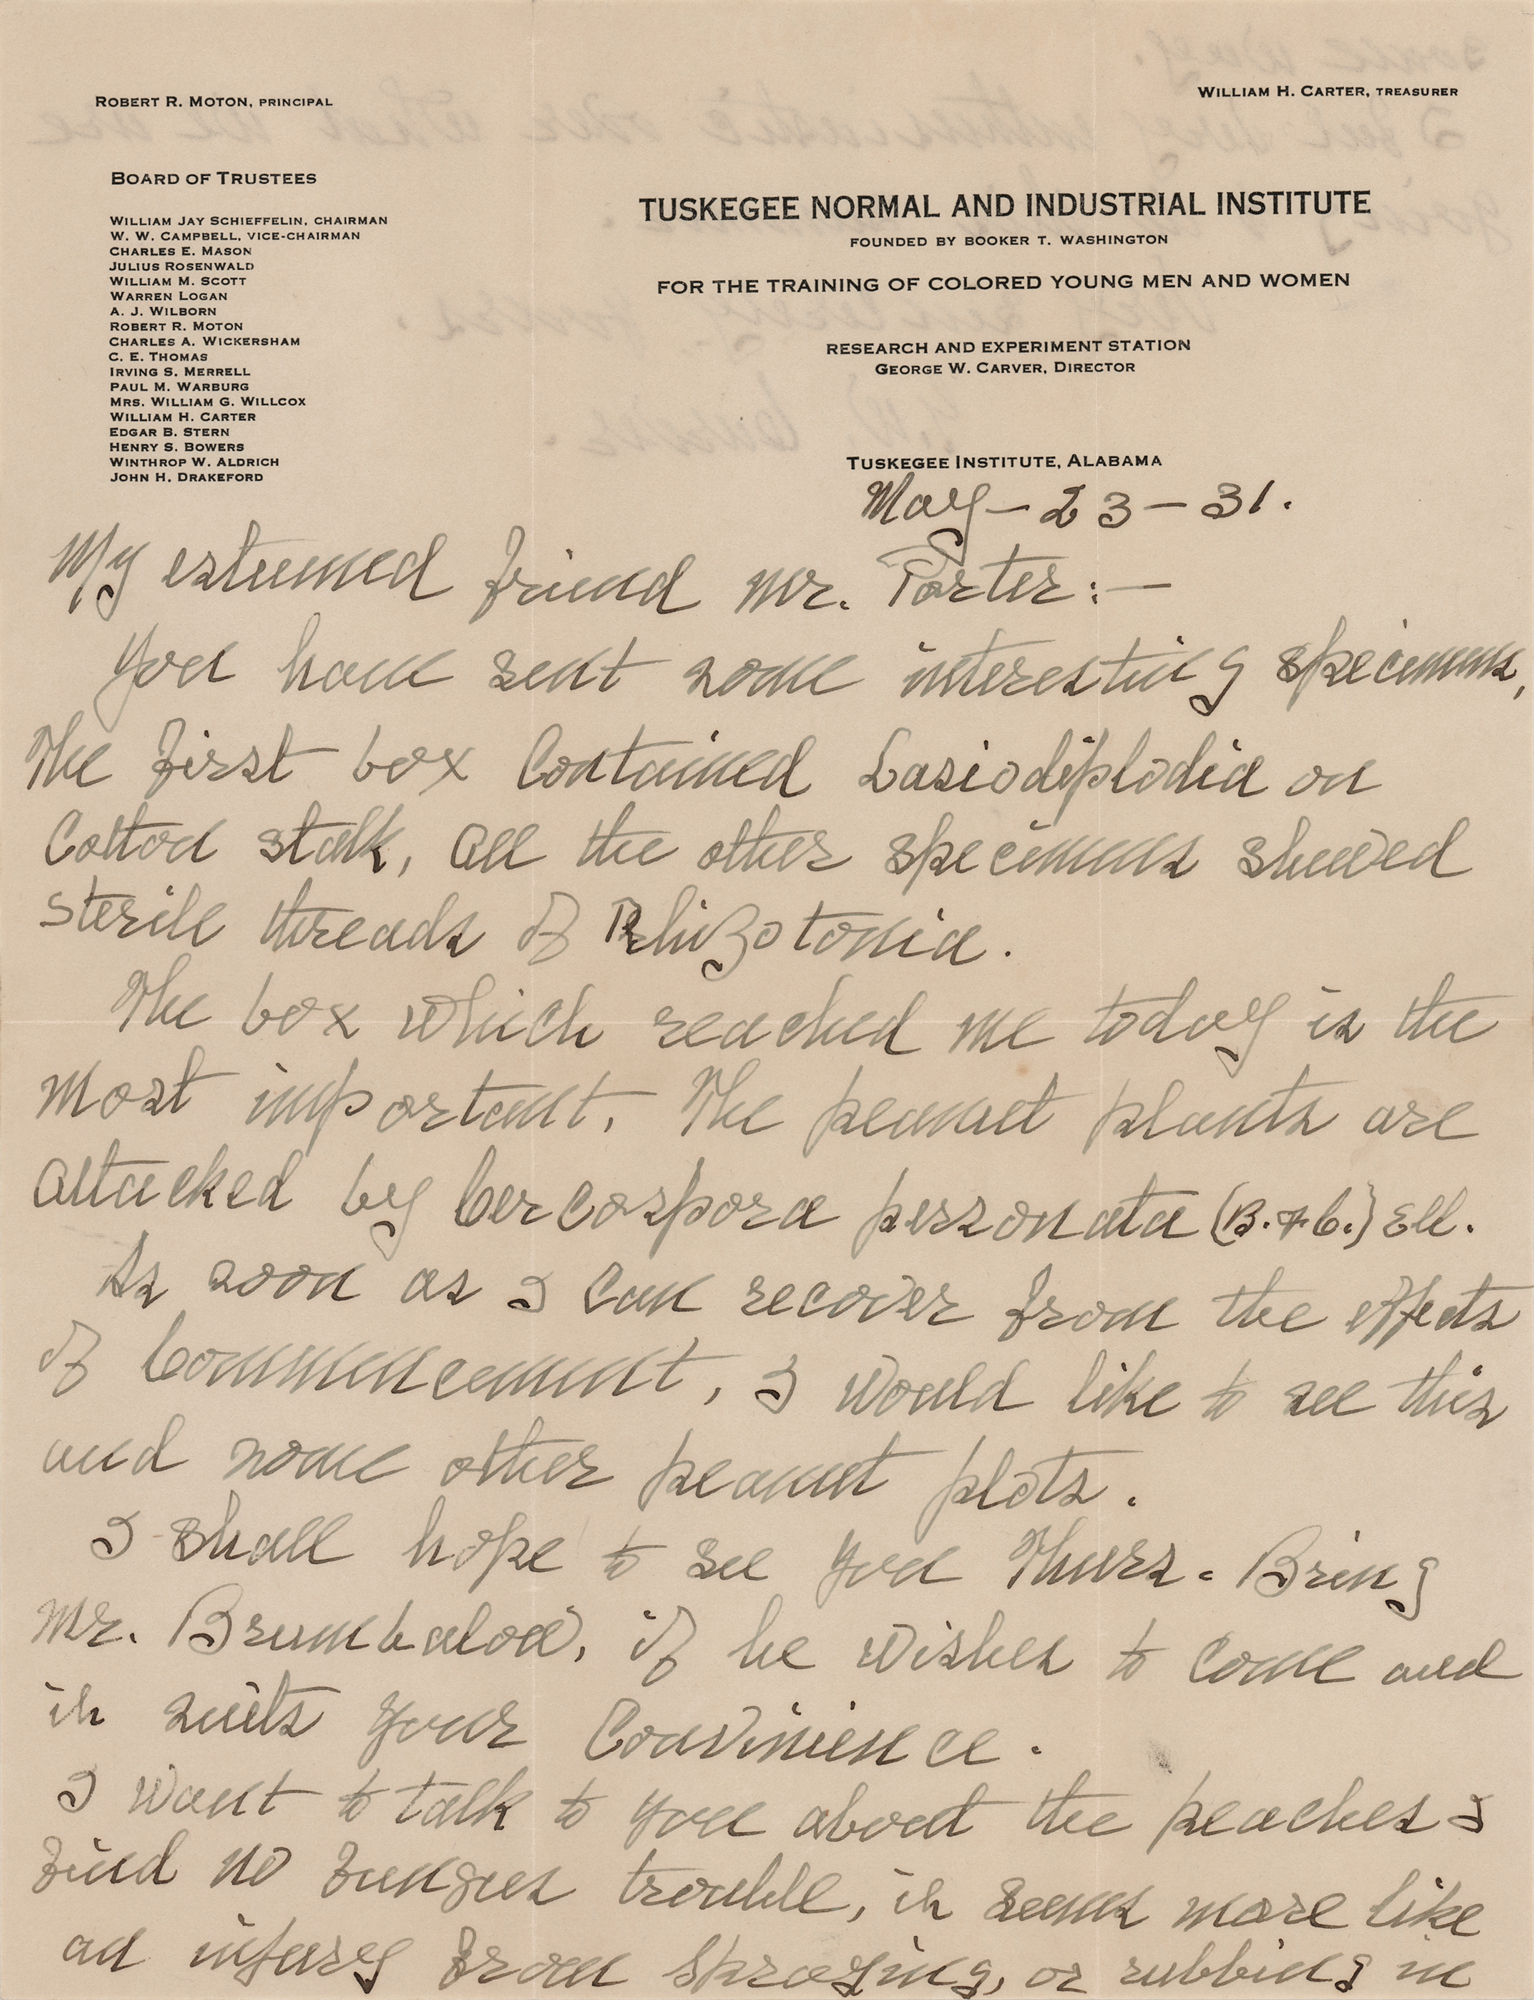 ROBERT R. MOTON, PRINCIPAL
WILLIAM H. CARTER, TREASURER
BOARD OF TRUSTEES
WILLIAM JAY SCHIEFFELIN, CHAIRMAN
W. W. CAMPBELL, VICE-CHAIRMAN
CHARLES E. MASON
JULIUS ROSENWALD
WILLIAM M. SCOTT
WARREN LOGAN
A. J. WILBORN
ROBERT R. MOTON
CHARLES A. WICKERSHAM
C. E. THOMAS
IRVING S. MERRELL
PAUL M. WARBURG
MRS. WILLIAM G. WILLCOX
WILLIAM H. CARTER
EDGAR B. STERN
HENRY S. BOWERS
WINTHROP W. ALDRICH
JOHN H. DRAKEFORD
TUSKEGEE NORMAL AND INDUSTRIAL INSTITUTE
FOUNDED BY BOOKER T. WASHINGTON
FOR THE TRAINING OF COLORED YOUNG MEN AND WOMEN
RESEARCH AND EXPERIMENT STATION
GEORGE W. CARVER, DIRECTOR
TUSKEGEE INSTITUTE, ALABAMA
May - 23 - 31.
My esteemed friend Mr. Porter: —
You have sent some interesting specimens,
The first box contained Lasiodiplodia on
Cotton stalk, all the other specimens showed
sterile threads of Rhizotonia.
The box which reached me today is the
most important. The peanut plants are
attacked by Cercospora personata (B. & C.) Ell.
As soon as I can recover from the effects
of Commencement, I would like to see this
and some other peanut plots.
I shall hope to see you Thurs. Bring
Mr. Brumbalow, if he wishes to come and
it suits your Convinience.
I want to talk to you about the peaches I
find no fungus trouble, it seems more like
an injury from spraying, or rubbing in